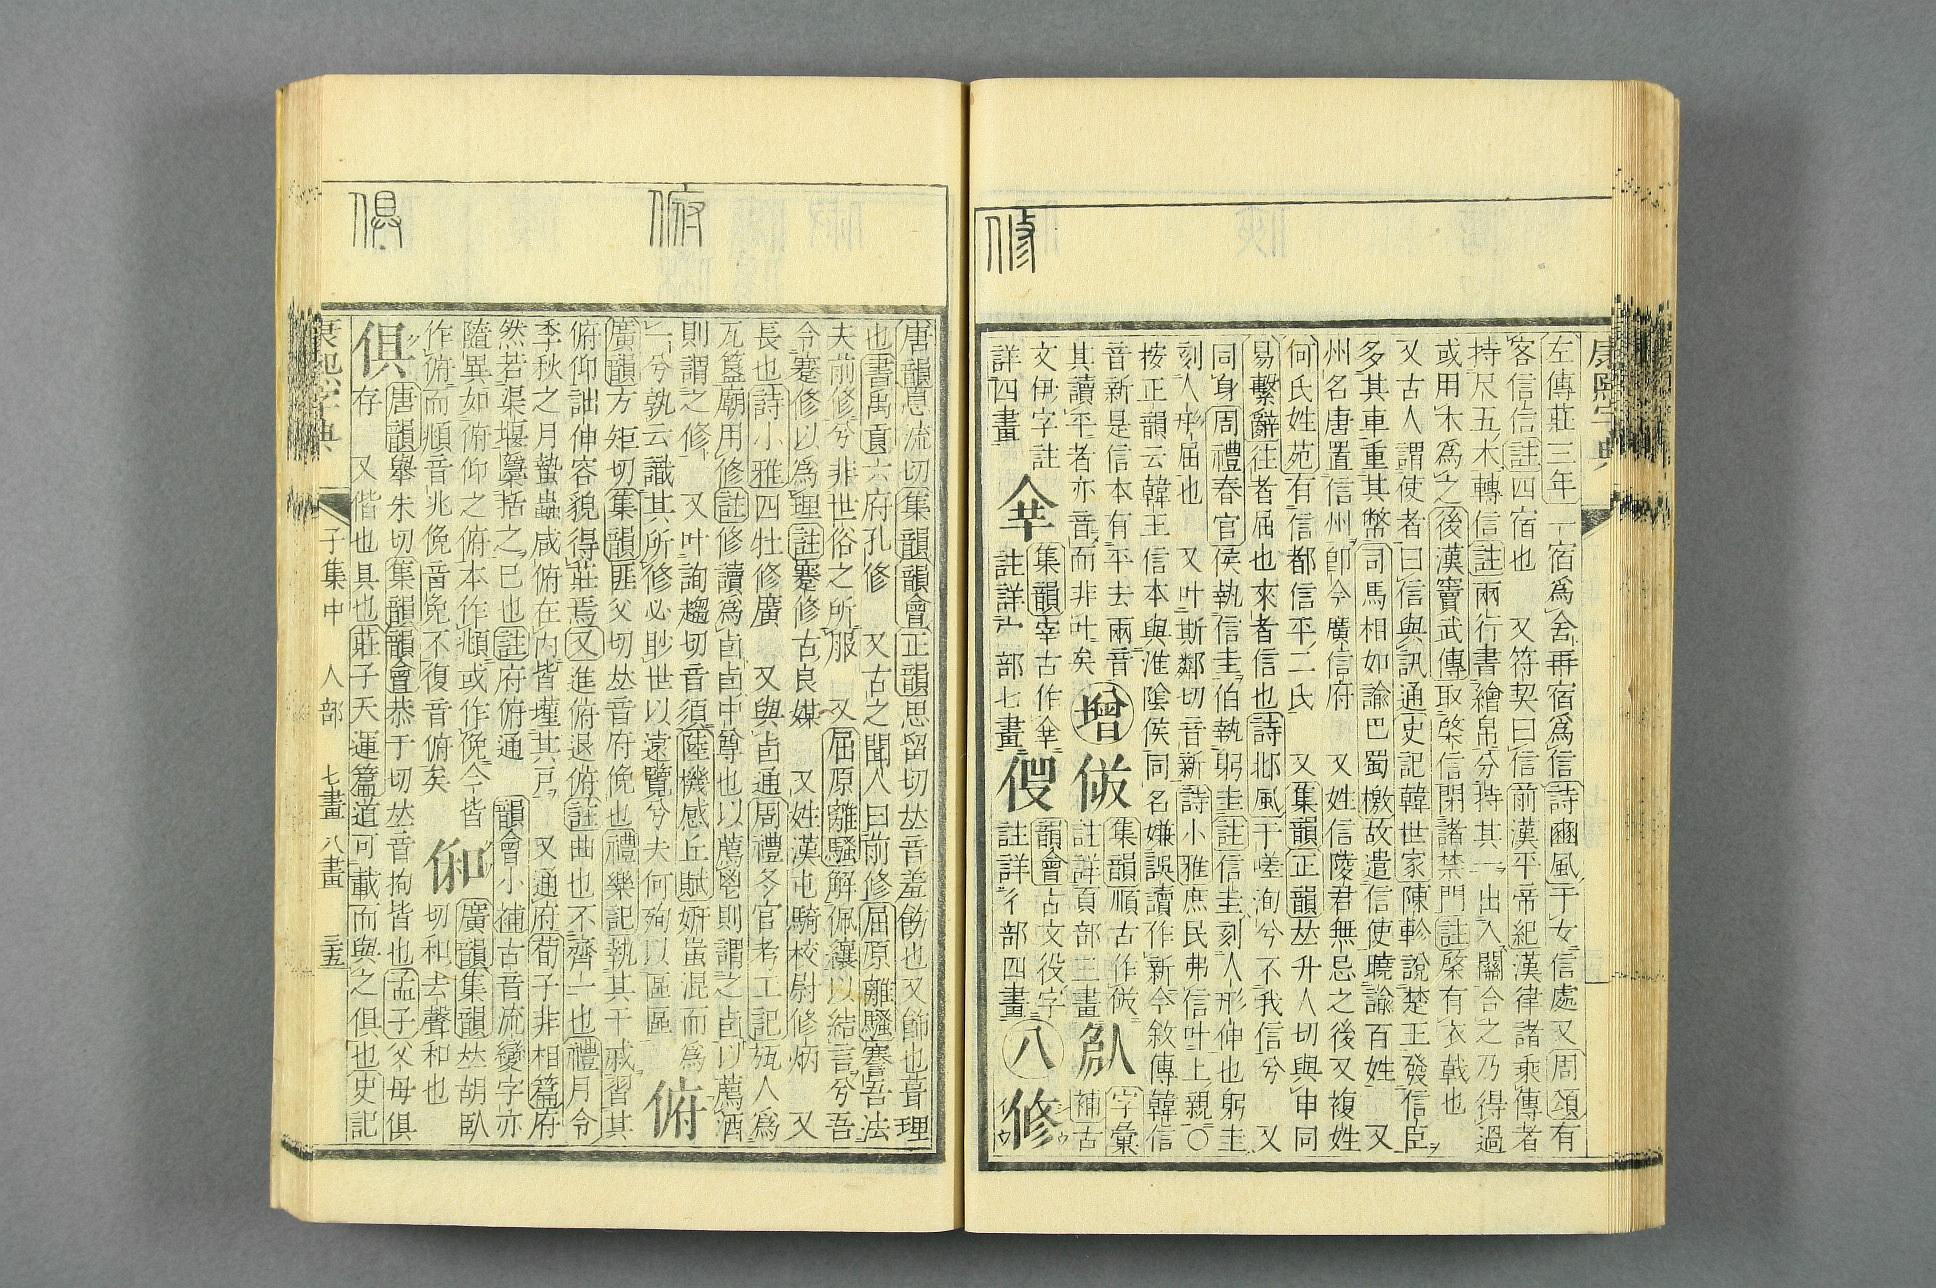 修
左傳莊三年一宿爲舍再宿爲信詩豳風于女信處又周頌有
客信信註四宿也 又符契曰信前漢平帝紀漢律諸乘傳者
持尺五木轉信註兩行書繒帛分持其一出入關合之乃得過
或用木爲之後漢竇武傳取棨信閉諸禁門註棨有衣戟也
又古人謂使者曰信與訊通史記韓世家陳軫說楚王發信臣
多其車重其幣司馬相如諭巴蜀檄故遣信使曉諭百姓 又
州名唐置信州卽今廣信府 又姓信陵君無忌之後又複姓
何氏姓苑有信都信平二氏 又集韻正韻𠀤升人切與申同
易繫辭往者屈也來者信也詩邶風于嗟洵兮不我信兮 又
同身周禮春官侯執信圭伯執躬圭註信圭刻人形伸也躬圭
刻人形屈也 又叶斯鄰切音新詩小雅庶民弗信叶上親○
按正韻云韓王信本與淮陰侯同名嫌誤讀作新今敘傳韓信
音新是信本有平去兩音
其讀平者亦音而非叶矣 增 㑐 集韻順古作㑐
註詳頁部三畫 字彙
補古
文伊字註
詳四畫 集韻宰古作
註詳宀部七畫 韻會古文役字
註詳彳部四畫 八 修 シウ
イウ
康熙字典
俯
俱
唐韻息流切集韻韻會正韻思留切𠀤音羞飭也又飾也葺理
也書禹貢六府孔修 又古之聞人曰前修屈原離騷謇吾法
夫前修兮非世俗之所服 又屈原離騷解佩纕以結言兮吾
令蹇修以為理註蹇修古良媒 又姓漢屯騎校尉修炳 又
長也詩小雅四牡修廣 又與卣通周禮冬官考工記㼚人爲
瓦簋廟用修註修讀爲卣卣中尊也以薦鬯則謂之卣以薦酒
則謂之修 又叶詢趨切音須陸機感丘賦妍蚩混而爲
一兮孰云識其所修必眇世以遠覽兮夫何殉以區區 俯
廣韻方矩切集韻匪父切𠀤音府俛也禮樂記執其干戚習其
俯仰詘伸容貌得莊焉又進俯退俯註曲也不齊一也禮月令
季秋之月蟄蟲咸俯在內皆墐其戸 又通府荀子非相篇府
然若渠堰檃栝之已也註府俯通 韻會小補古音流變字亦
隨異如俯仰之俯本作頫或作俛今皆
作俯而頫音兆俛音免不復音俯矣 俰 廣韻集韻𠀤胡臥
切和去聲和也
俱 唐韻舉朱切集韻韻會恭于切𠀤音拘皆也孟子父母俱
存 又偕也具也莊子天運篇道可載而與之俱也史記
康熙字典 子集中 人部 七畫 八畫 三五